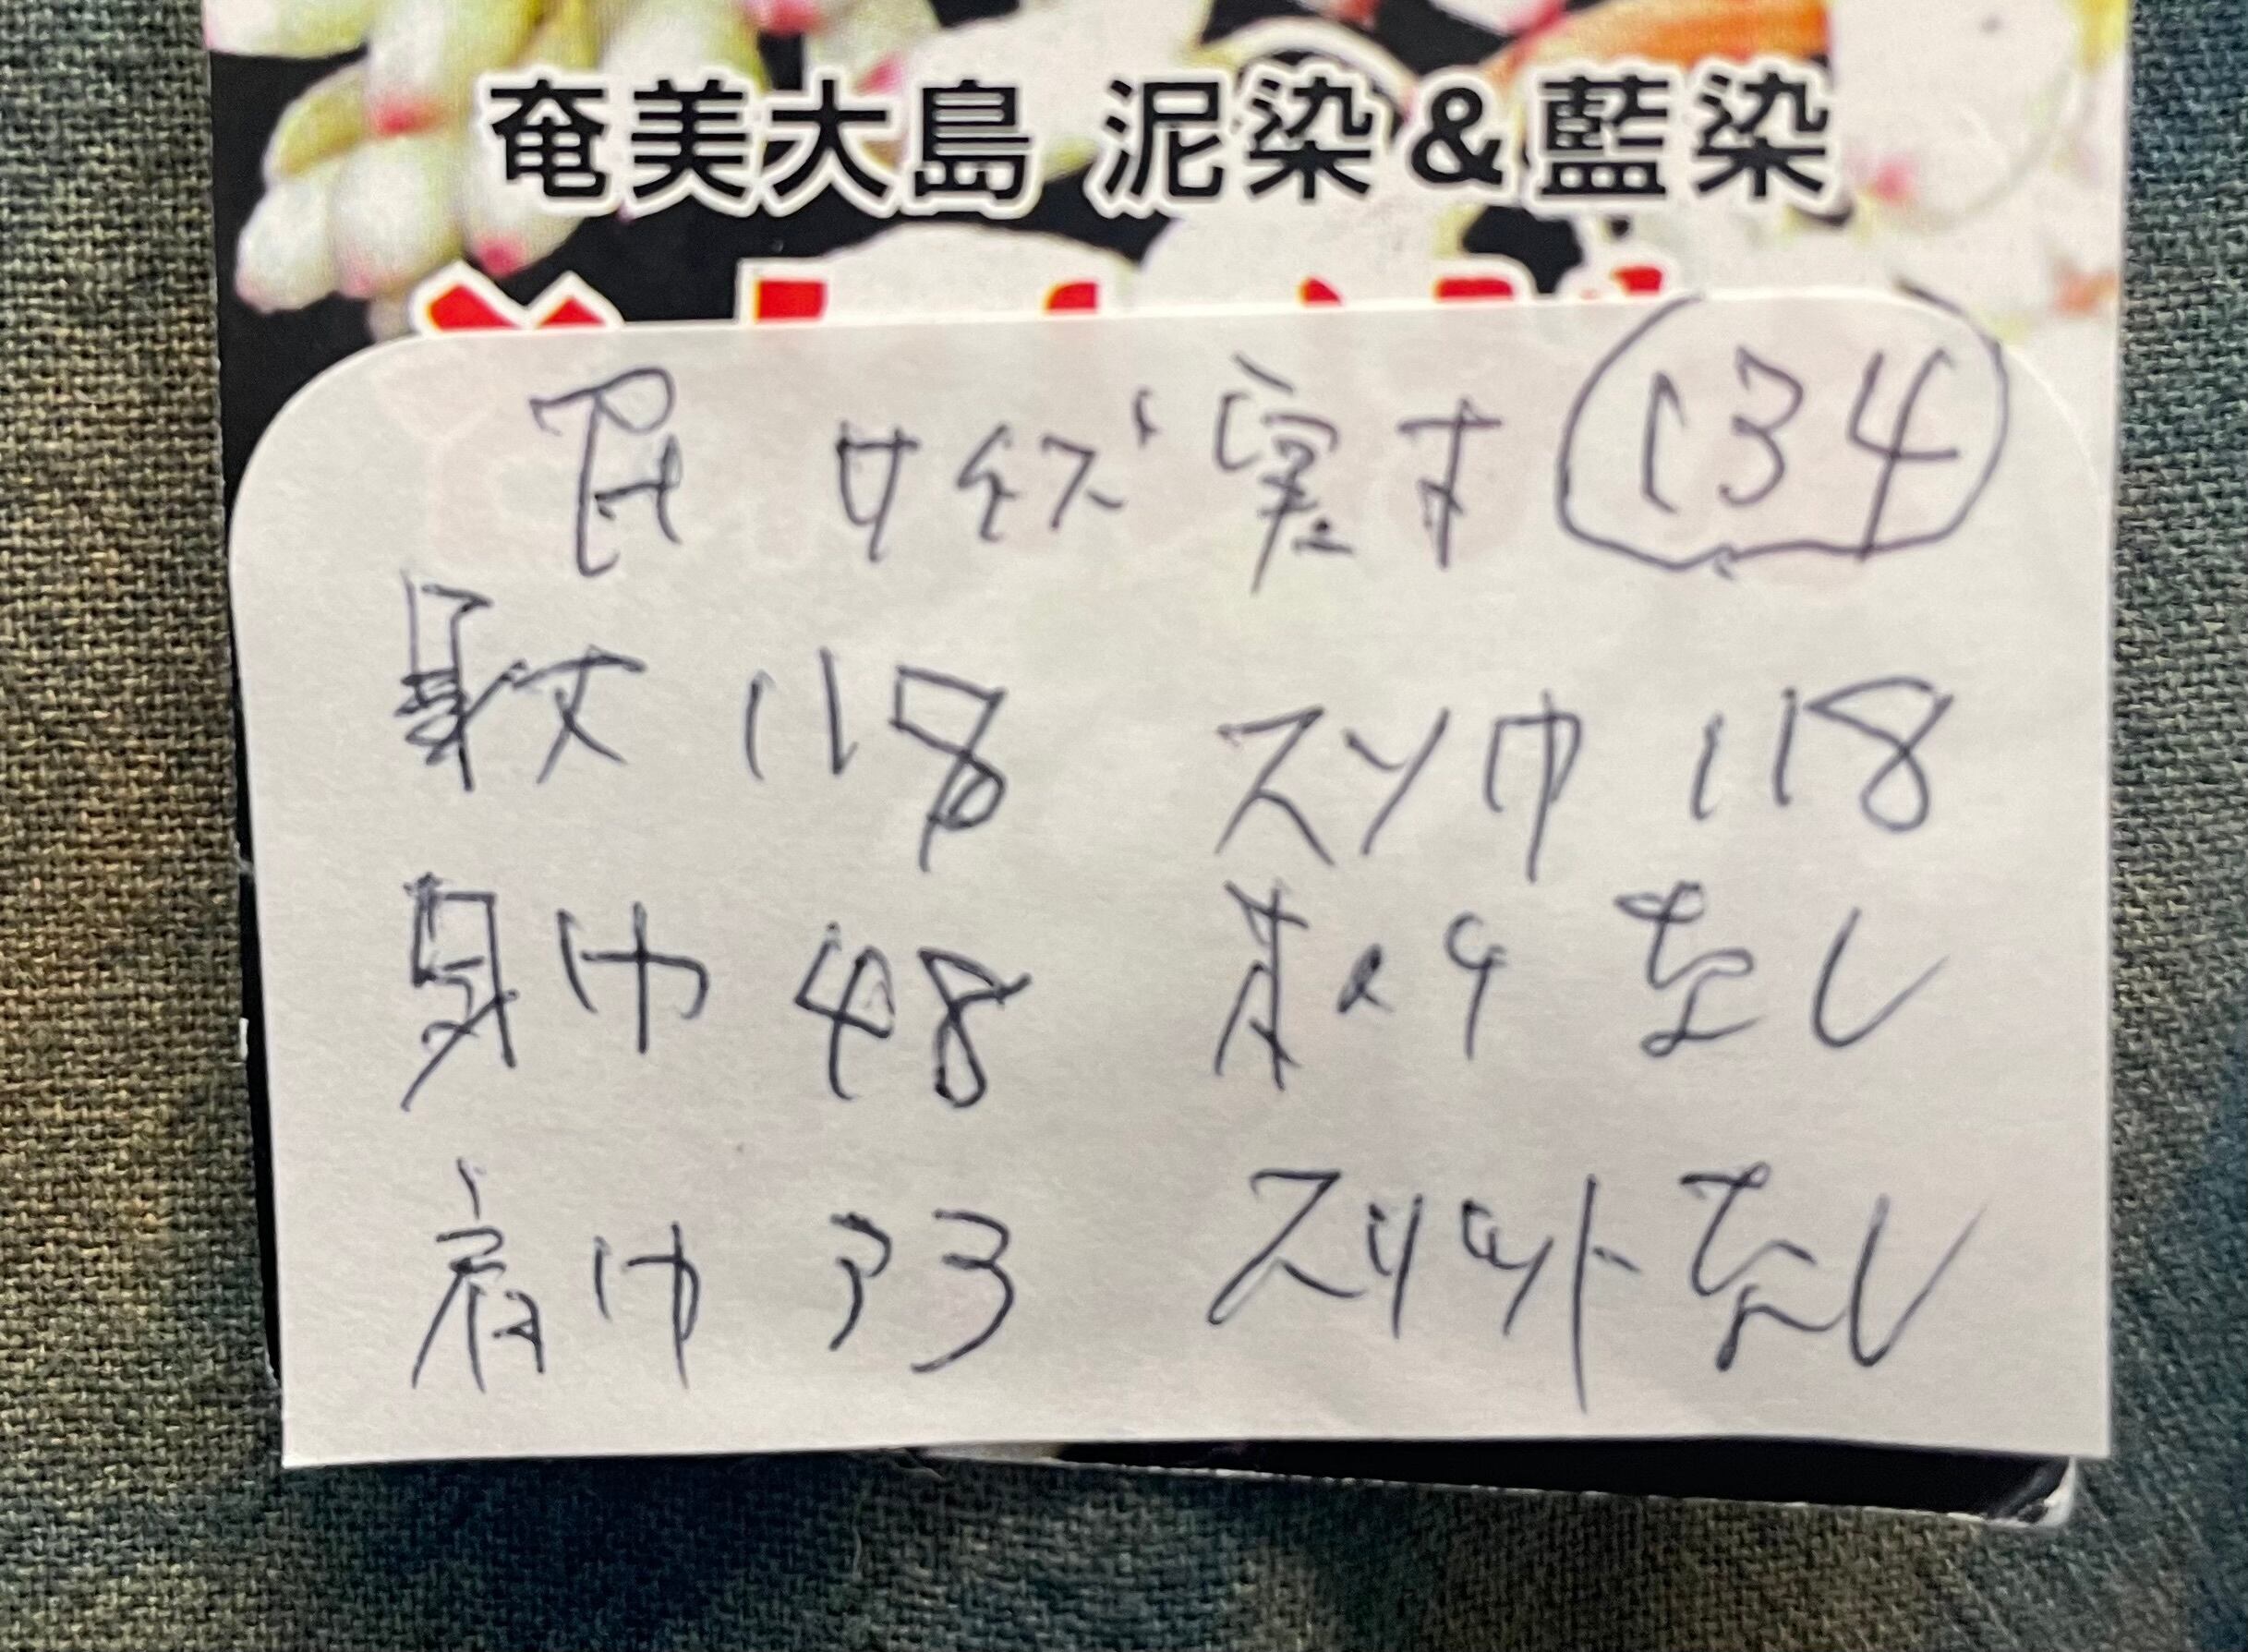 奄美大島 泥染&藍染
サイズ 実寸 134
着丈 118 スソ巾 118
身巾 48 ポッケ なし
肩巾 33 スリット なし